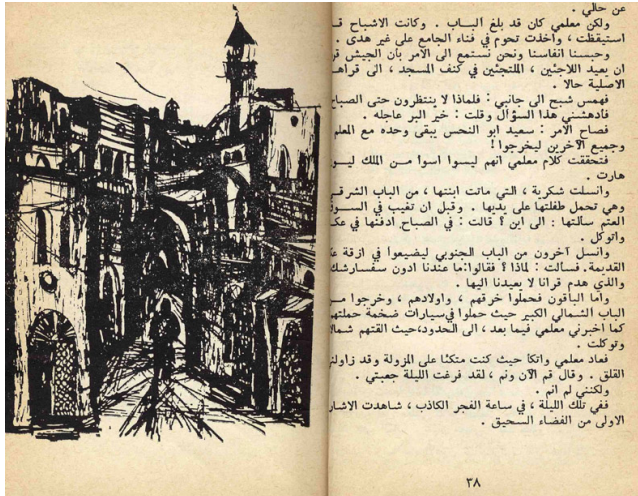 عن حالي .
ولكن معلمي كان قد بلغ الباب . وكانت الاشباح قـ
استيقظت ، وأخذت تحوم في فناء الجامع على غير هدى .
وحبسنا انفاسنا ونحن نستمع الى الامر بأن الجيش قر
ان يعيد اللاجئين ، الملتجئين في كنف المسجد ، الى قراهـ
الاصلية حالا .
فهمس شبح الى جانبي : فلماذا لا ينتظرون حتى الصباح
فأدهشني هذا السؤال وقلت : خير البر عاجله .
فصاح الآمر : سعيد ابو النحس يبقى وحده مع المعلم
وجميع الآخرين ليخرجوا !
فتحققت كلام معلمي انهم ليسوا اسوأ مـن الملك ليو
هارت .
وانسلت شكرية ، التي ماتت ابنتها ، من الباب الشرقي
وهي تحمل طفلتها على يديها . وقبل ان تغيب في السـو
العتم سألتها : الى اين ؟ قالت : في الصباح ادفنها في عكـ
واتوكل .
وانسل آخرون من الباب الجنوبي ليضيعوا في ازقة عكـ
القديمة . فسألت : لماذا ؟ فقالوا : ما عندنا ادون سفسارشك
والذي هدم قرانا لا يعيدنا اليها .
واما الباقون فحملوا خرقهم ، واولادهم ، وخرجوا مـن
الباب الشمالي الكبير حيث حملوا في سيارات ضخمة حملتهم
كما اخبرني معلمي فيما بعد ، الى الحدود ، حيث القتهم شمالا
وتوكلت .
فعاد معلمي واتكأ حيث كنت متكئا على المزولة وقد زاولنـ
القلق . وقال قم الآن ونم ، لقد فرغت الليلة جعبتي .
ولكنني لم انم .
ففي تلك الليلة ، في ساعة الفجر الكاذب ، شاهدت الاشار
الاولى من الفضاء السحيق .
٣٨